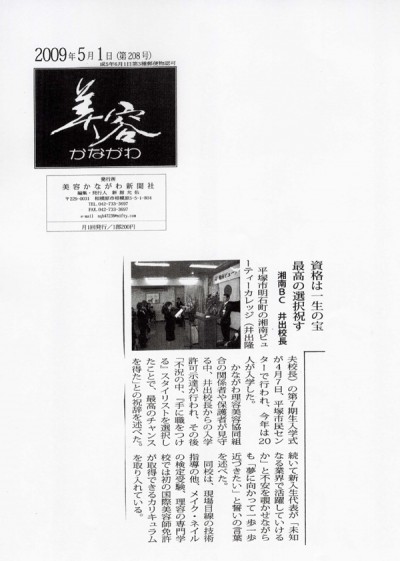 2009年5月1日(第208号)
美容
かながわ
発行所
美容かながわ新聞社
TEL.042-733-3697
FAX.042-733-3697
月1回発行/1部200円
資格は一生の宝
最高の選択祝す
湘南BC 井出校長
平塚市明石町の湘南ビュ
ーティーカレッジ(井出隆
夫校長)の第7期生入学式
が4月7日、平塚市民セン
ターで行われ、今年は20
人が入学した。
かながわ理容美容協同組
合の関係者や保護者が見守
る中、井出校長からの入学
許可示達が行われ、その後
「不況の中、『手に職をつけ
る』スタイリストを選択し
たことで、最高のチャンス
を得た」との祝辞を述べた。
続いて新入生代表が「未知
なる業界で活躍していける
か」と不安を覗かせながら
も「夢に向かって一歩一歩
近づきたい」と誓いの言葉
を述べた。
同校は、現場目線の技術
指導の他、メイク・ネイル
の検定受験、理容の専門学
校では初の国際美容師免許
が取得できるカリキュラム
を取り入れている。